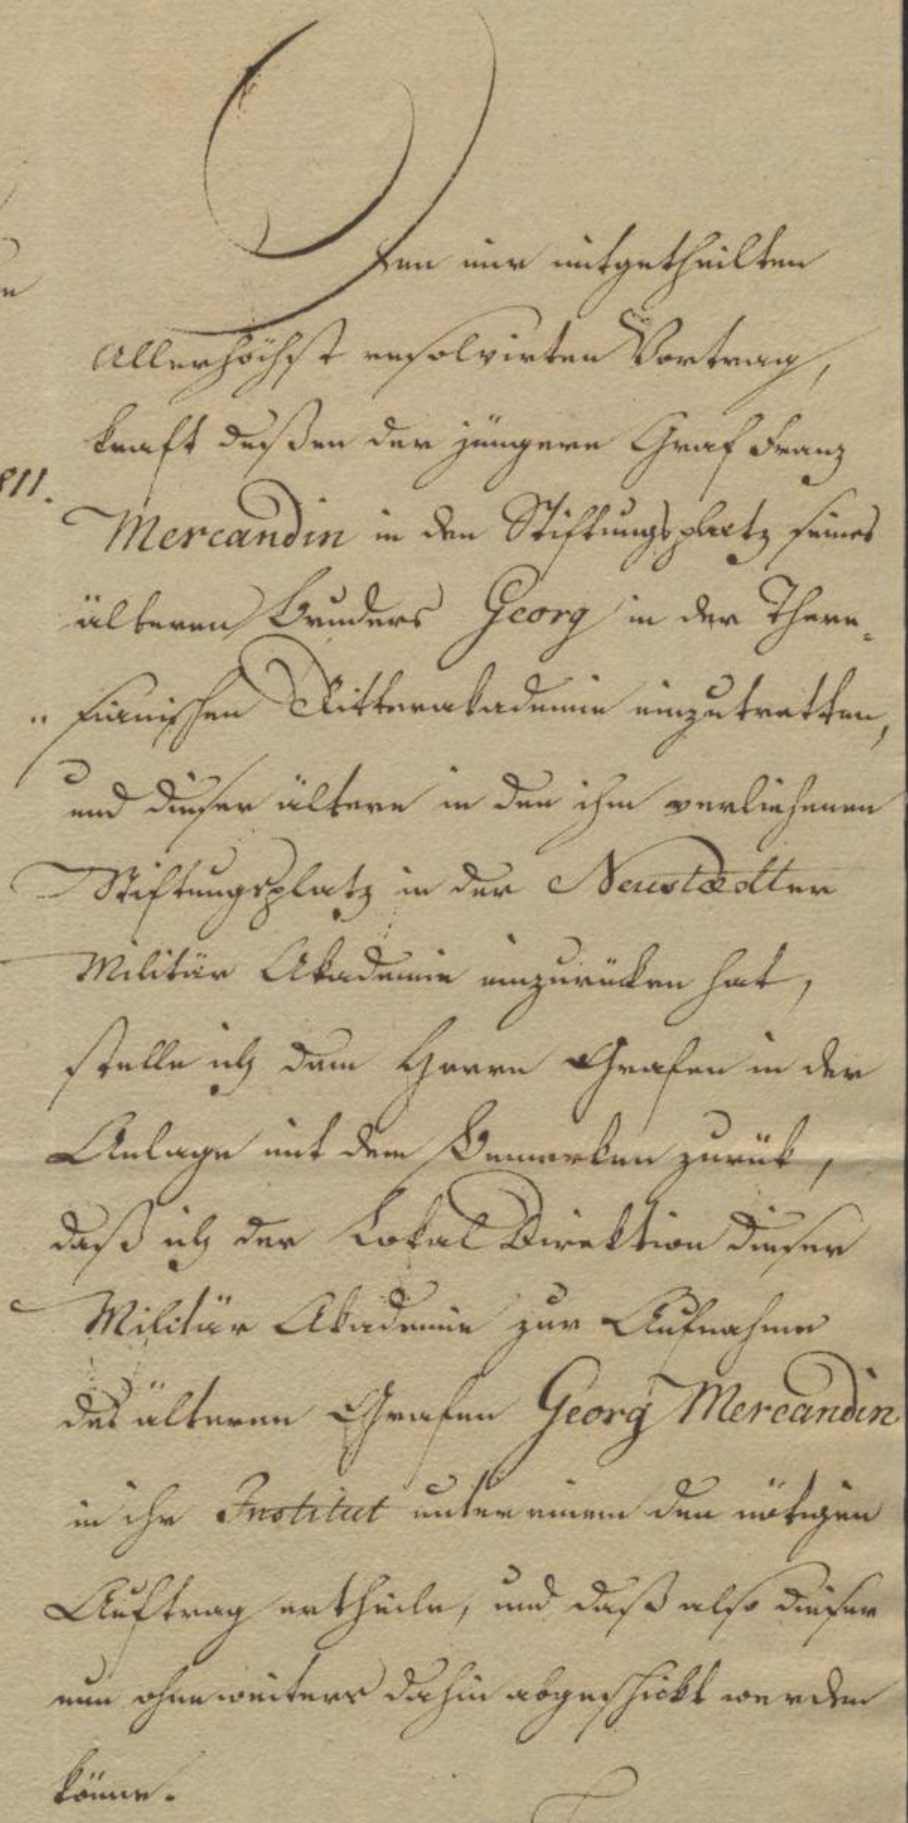 Den mir mitgetheilten
Allerhöchst resolvirten Vortrag,
kraft dessen der jüngere Graf Franz
811.
Mercandin in den Stiftungsplatz seines
älteren Bruders Georg in der There„
„sianischen Ritterakademie einzutretten,
und dieser ältere in den ihm verliehenen
Stiftungsplatz in der Neustædter
Militär Akademie einzurüken hat,
stelle ich dem Herrn Grafen in der
Anlage mit dem Bemerken zurük,
daß ich der Lokal Direktion dieser
Militär Akademie zur Aufnahme
des älteren Grafen Georg Mercandin
in ihr Institut unter einem den nötigen
Auftrag ertheile, und daß also dieser
nun ohneweiters dahin abgeschickt werden
könne.